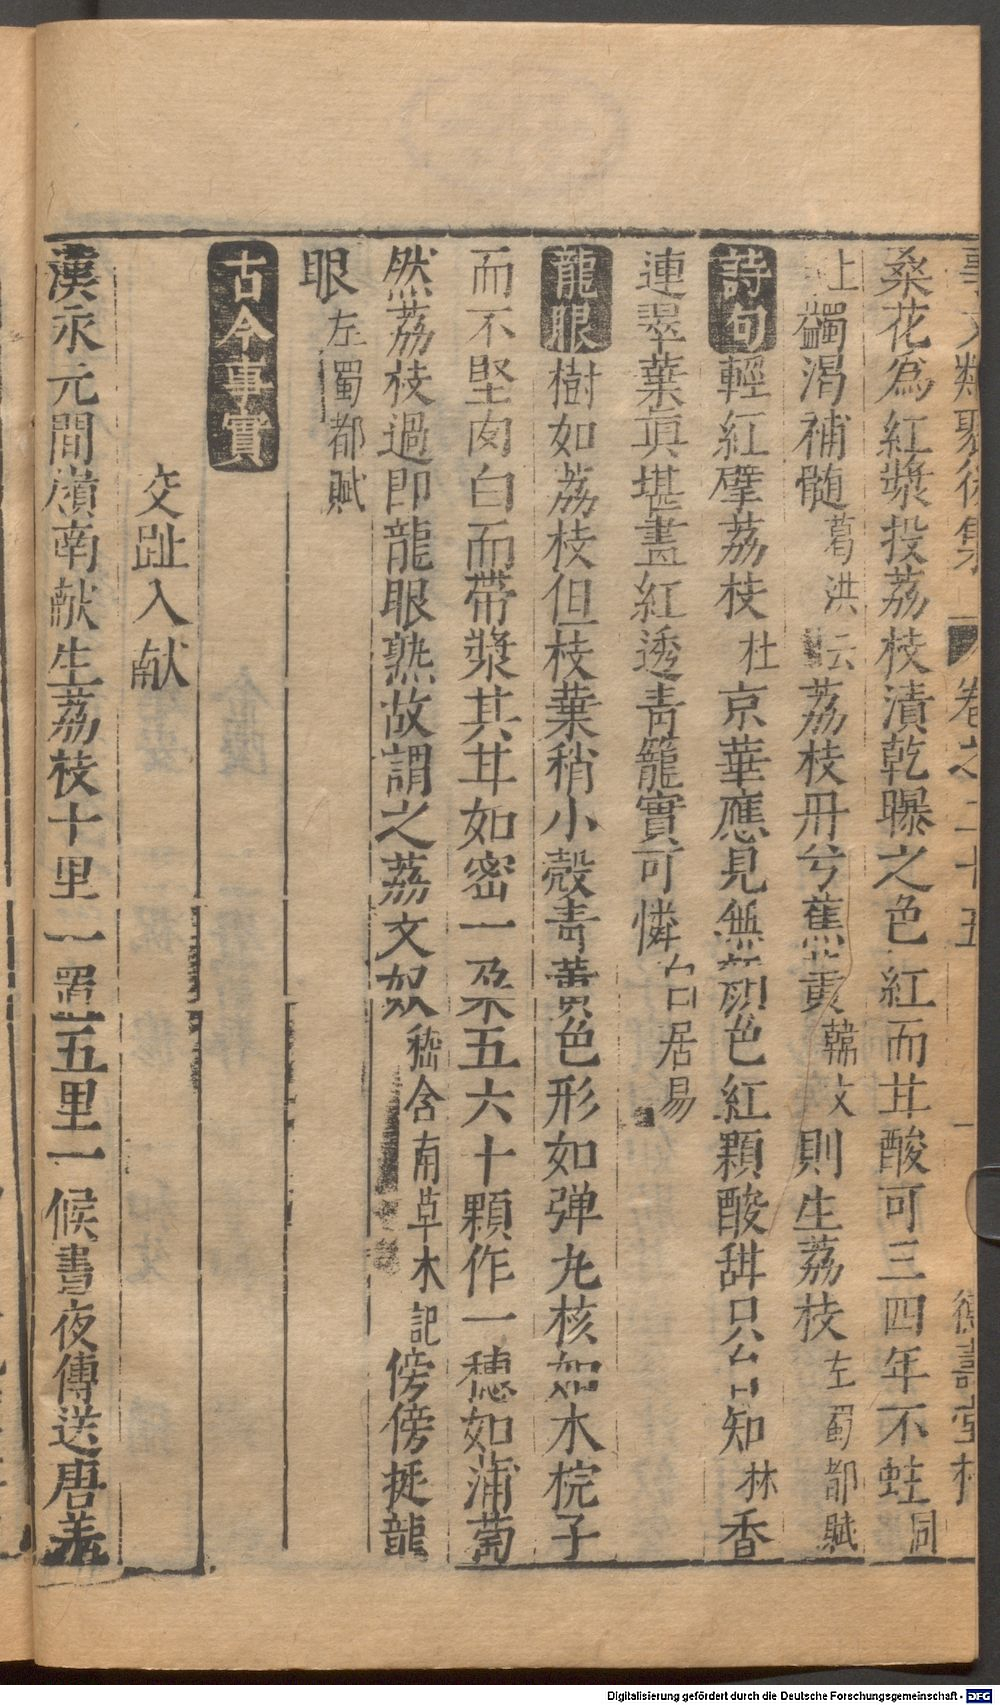 事文類聚後集 卷之二十五 德壽堂梓
桑花為紅漿投荔枝漬乾曝之色紅而甘酸可三四年不蛀同
上蠲渴補髓葛洪云荔枝丹兮蕉黃韓文則生荔枝左蜀都賦
詩句輕紅擘荔枝杜京華應見無顏色紅顆酸甜只自知林香
連翠葉真堪畫紅透青籠實可憐白居易
龍眼樹如荔枝但枝葉稍小殼青黃色形如弹丸核如木梡子
而不堅肉白而帶漿其甘如密一朶五六十顆作一穗如蒲萄
然荔枝過即龍眼熟故謂之荔支奴嵇含南草木記傍傍挺龍
眼左蜀都賦
古今事實
交趾入献
漢永元間嶺南献生荔枝十里一置五里一候晝夜傳送唐羌
Digitalisierung gefördert durch die Deutsche Forschungsgemeinschaft - DFG